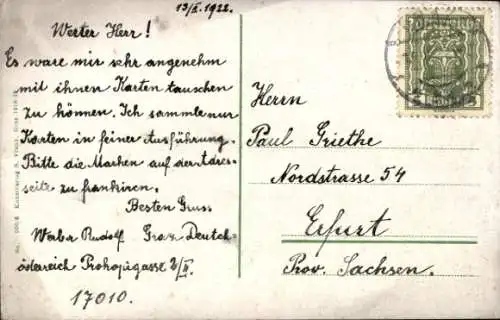 13/II. 1922.
Werter Herr!
Es wäre mir sehr angenehm
mit ihnen Karten tauschen
zu können. Ich sammle nur
Karten in feiner Ausführung.
Bitte die Marken auf der Adres-
seite zu frankiren.
Besten Gruss
Rudolf Graz Deutch-
österreich Prokopigasse 2/II.
17010.
Herrn
Paul Griethe
Nordstrasse 54
Erfurt
Prov. Sachsen.